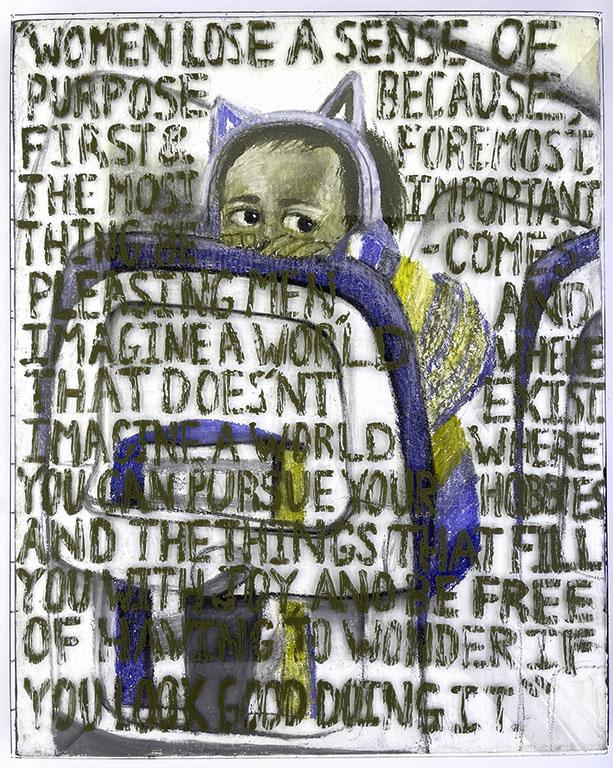 "WOMEN LOSE A SENSE OF
PURPOSE BECAUSE,
FIRST & FOREMOST,
THE MOST IMPORTANT
THING BE -COMES
PLEASING MEN, AND
IMAGINE A WORLD WHERE
THAT DOES'NT EXIST
IMAGINE A WORLD WHERE
YOU CAN PURSUE YOUR HOBBIES
AND THE THINGS THAT FILL
YOU WITH JOY AND BE FREE
OF HAVING TO WONDER IF
YOU LOOK GOOD DOING IT"